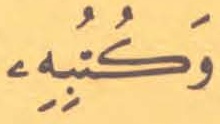 وَكُتُبِهِۦ